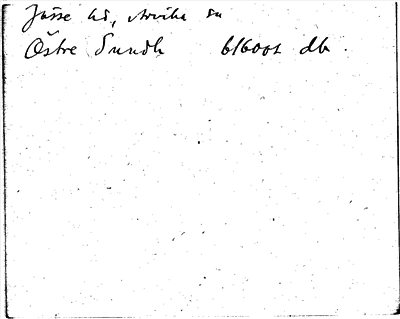 Jösse hd, Arvika sn
Östre Sundh 616001 db.